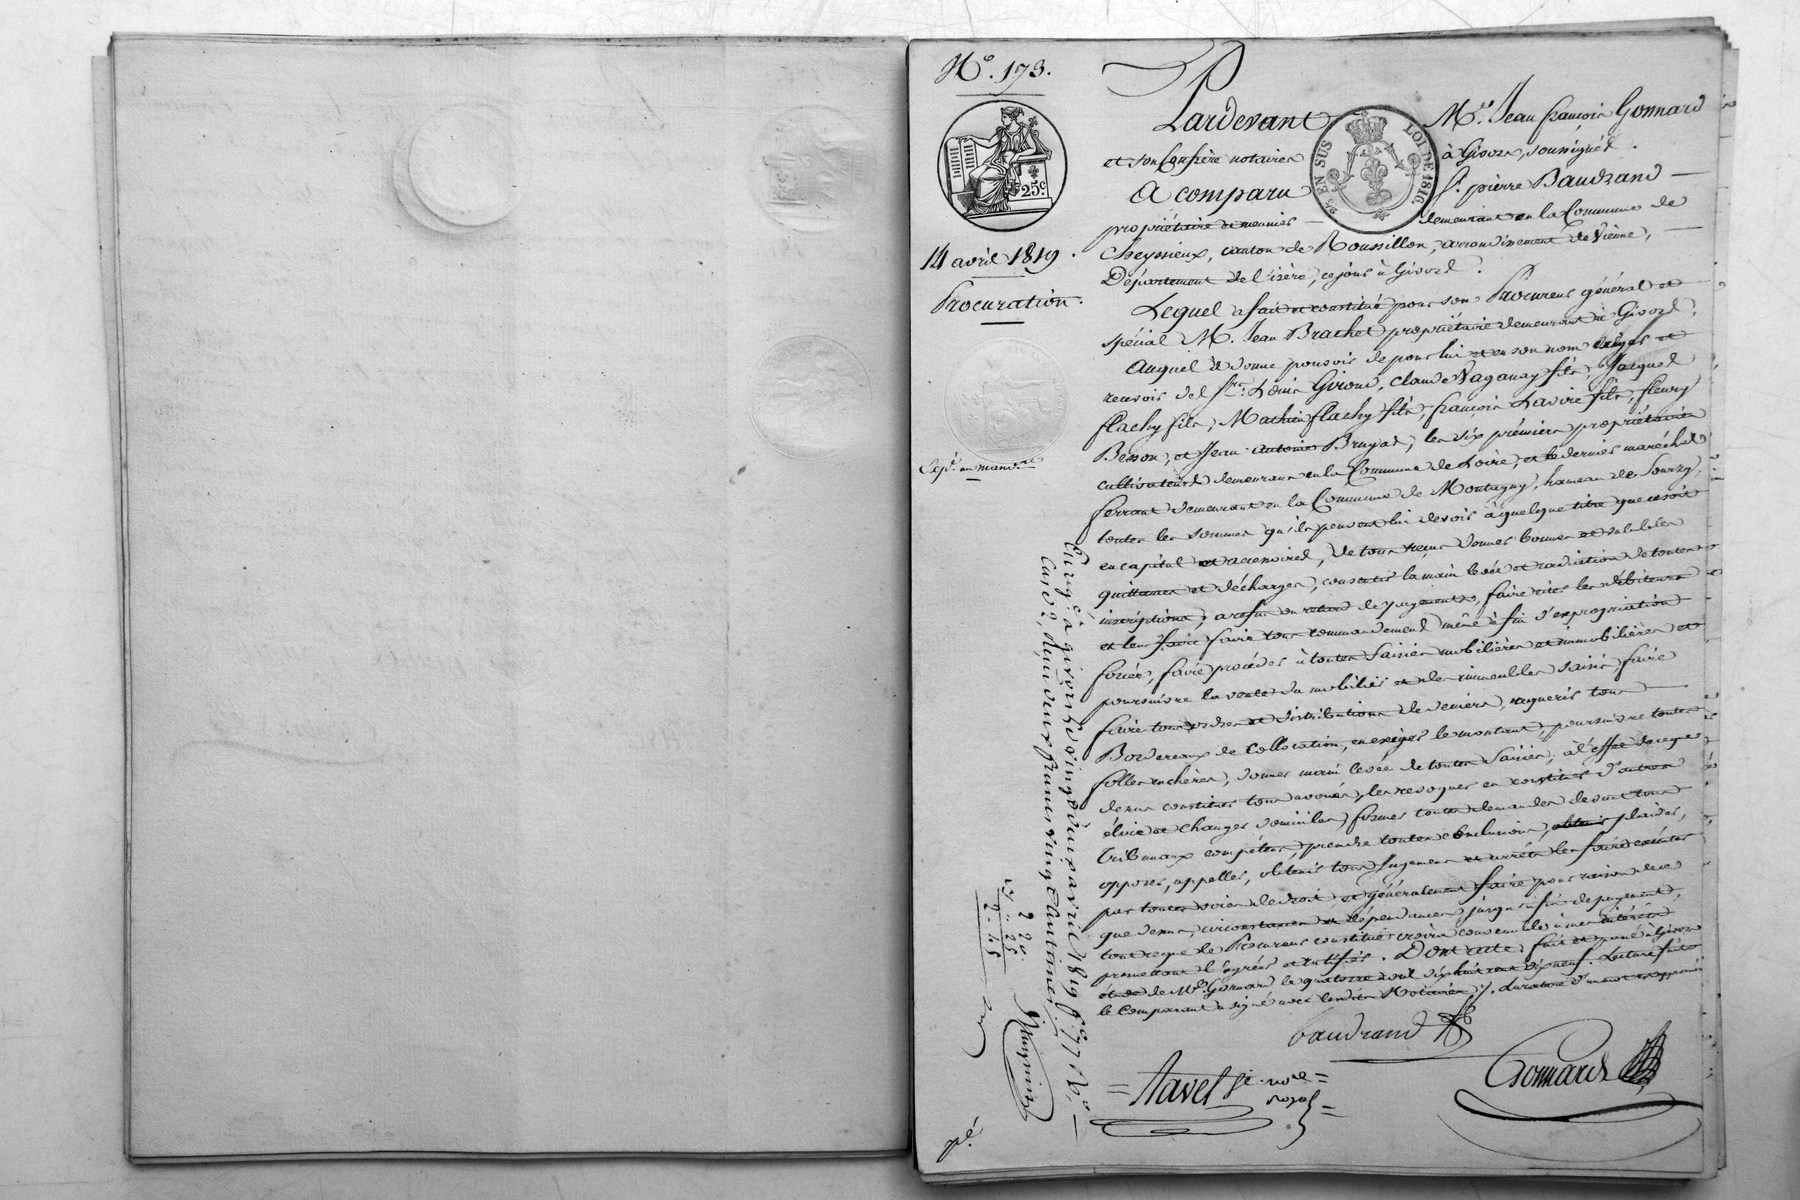 N.o 173.
25c
14 avril 1819.
Procuration.
Expn. au mandre
Pardevant Me. Jean françois Gonnard
et son Confrère notaires à Givors, soussignés.
25c EN SUS LOI DE 1816.
A comparu Sr. pierre Baudrand
propriétaire et meunier demeurant en la Commune de
Cheyssieux, canton de Roussillon, arrondissement de Vienne,
Département de l'isère, ce jour à Givors.
Lequel a fait et constitué pour son Procureur général et
spécial M. Jean Brachet propriétaire demeurant à Givors,
Auquel il donne pouvoir de pour lui et en son nom exiger et
recevoir des Srs. Louis Giroud, claude Vaganay fils, Jacques
flachy fils, Mathieu flachy fils, françois Lavoié fils, fleury
Besson, et Jean Antoine Bruyat, les six prémiers propriétaires
cultivateurs demeurans en la Commune de Loire, et le dernier maréchal
ferrant demeurant en la Commune de Montagny, hameau de Sourzy,
toutes les sommes qu'ils peuvent lui devoir à quelque titre que ce soit
en capital et accessoires, de tous reçus donner bonnes et valables
quittances et décharges, consentir la main levée et radiation de toutes
inscriptions, à refus ou retard de payements, faire citer les débiteurs
et leur faire faire tous commandemens même à fin d'expropriation
forcée, faire procéder à toutes saisies mobilières et immobilières et
poursuivre la vente du mobilier et des immeubles saisis, faire
faire tous ordres et distributions de deniers, requerir tous
Bordereaux de Collocation, en exiger le montant, poursuivre toutes
folles enchères, donner main levée de toutes saisies, à l'effet de ce que
dessus constituer tous avoués, les revoquer en constituer d'autres
élire et changer domiciles, former toutes demandes devant tous
Tribunaux compétens, prendre toutes conclusions, plaider,
opposer, appeller, obtenir tous jugemens et arrêts les faire exécuter
par toutes voies de droit et généralement faire pour raison de ce
que dessus, circonstances et dépendances, jusqu'à fin de payement,
tout ce que le Procureur constitué croira convenable à ses intérêts
promettant l'agréer et ratifier. Dont acte, fait et passé à Givors
étude de Me. Gonnard le quatorze avril dix huit cent dix neuf. Lecture faite
le Comparant a signé avec lesdits Notaires
baudrand
Tavel
Gonnard
Enregé. à givors le vingt deux avril 1819 f.o 77 Ro.
Case 2, reçu deux francs vingt centimes
2 20
25
2. 45